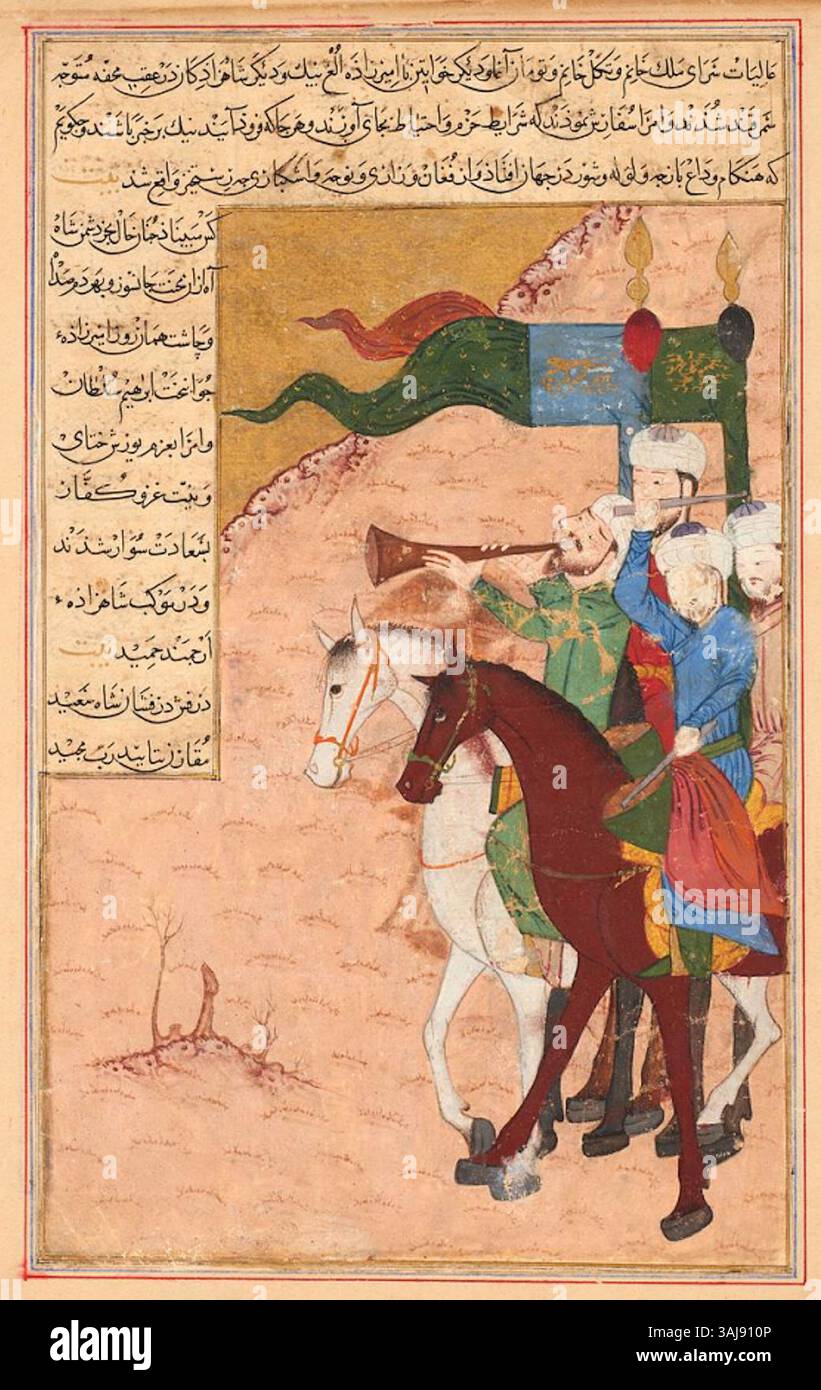 عالیات سرای ملک خانم و تکل خانم و تومان آغا و دیگر خواتین با امیرزاده الغ بیک و دیگر شاهزادگان در عقب محفه متوجه
سمرقند شدند و امرا سفارش نمودند که شرایط حزم و احتیاط بجای آورند و هر جا که فرود آیند نیک برخبر باشند و چکویم
که هنکام وداع باز چه ولوله و شور در جهان افتاد و از فغان و زاری و نوحه و اشکباری چه رستخیز واقع شد بیت
کس مبیناد چنان حال بجز دشمن شاه
آه ازان بخت جانسوز و بهر دم صد آه
و چاشت همان روز امیرزادهٔ
جوانبخت ابرهیم سلطان
و امرا بعزم یورش ختای
و بنیت غزو کفار
بسعادت سوار شدند
و در موکب شاهزادهٔ
ارجمند حمید بیت
درفش درفشان شاه سعید
مقارن بتایید رب مجید
alamy
Image ID: 3AJ910P
www.alamy.com